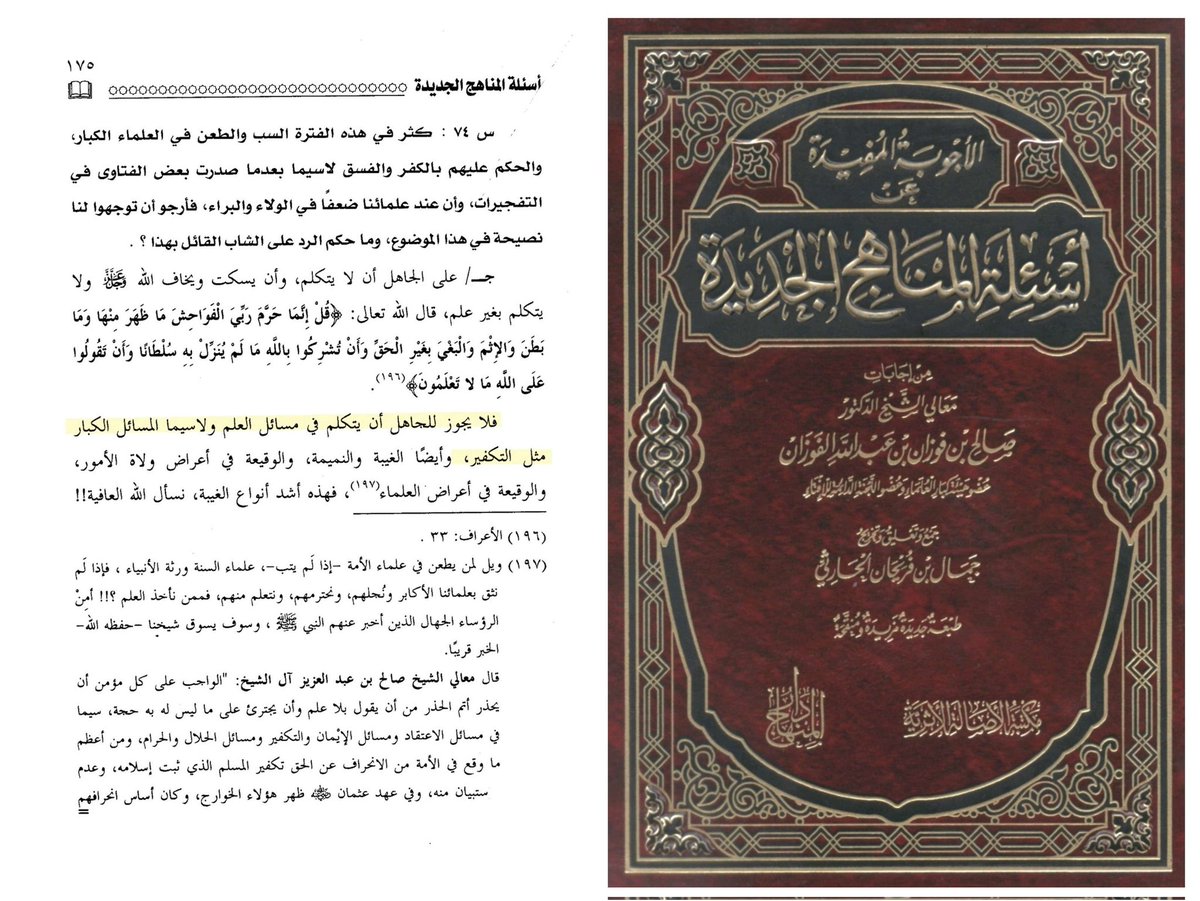 ١٧٥
أسئلة المناهج الجديدة
س ٧٤ : كثر في هذه الفترة السب والطعن في العلماء الكبار،
والحكم عليهم بالكفر والفسق لاسيما بعدما صدرت بعض الفتاوى في
التفجيرات، وأن عند علمائنا ضعفًا في الولاء والبراء، فأرجو أن توجهوا لنا
نصيحة في هذا الموضوع، وما حكم الرد على الشاب القائل بهذا ؟ .
جـ/ على الجاهل أن لا يتكلم، وأن يسكت ويخاف الله ﷿ ولا
يتكلم بغير علم، قال الله تعالى: ﴿قُلْ إِنَّمَا حَرَّمَ رَبِّيَ الْفَوَاحِشَ مَا ظَهَرَ مِنْهَا وَمَا
بَطَنَ وَالإِثْمَ وَالْبَغْيَ بِغَيْرِ الْحَقِّ وَأَنْ تُشْرِكُوا بِاللَّهِ مَا لَمْ يُنَزِّلْ بِهِ سُلْطَانًا وَأَنْ تَقُولُوا
عَلَى اللَّهِ مَا لا تَعْلَمُونَ﴾(١٩٦).
فلا يجوز للجاهل أن يتكلم في مسائل العلم ولاسيما المسائل الكبار
مثل التكفير، وأيضًا الغيبة والنميمة، والوقيعة في أعراض ولاة الأمور،
والوقيعة في أعراض العلماء(١٩٧)، فهذه أشد أنواع الغيبة، نسأل الله العافية!!
(١٩٦) الأعراف: ٣٣ .
(١٩٧) ويل لمن يطعن في علماء الأمة -إذا لَم يتب-، علماء السنة ورثة الأنبياء ، فإذا لَم
نثق بعلمائنا الأكابر ونُجلهم، ونحترمهم، ونتعلم منهم، فممن نأخذ العلم ؟!! أمِنْ
الرؤساء الجهال الذين أخبر عنهم النبي ﷺ ، وسوف يسوق شيخنا -حفظه الله-
الخبر قريبًا.
قال معالي الشيخ صالح بن عبد العزيز آل الشيخ: "الواجب على كل مؤمن أن
يحذر أتم الحذر من أن يقول بلا علم وأن يجترئ على ما ليس له به حجة، سيما
في مسائل الاعتقاد ومسائل الإيْمان والتكفير ومسائل الحلال والحرام، ومن أعظم
ما وقع في الأمة من الانحراف عن الحق تكفير المسلم الذي ثبت إسلامه، وعدم
ستبيان منه، وفي عهد عثمان ﵁ ظهر هؤلاء الخوارج، وكان أساس انحرافهم
=
الأجوبة المفيدة
عن
أسئلة المناهج الجديدة
من إجابات
معالي الشيخ الدكتور
صالح بن فوزان بن عبد الله الفوزان
عضو هيئة كبار العلماء وعضو اللجنة الدائمة للإفتاء
جمع وتعليق وتخريج
جمال بن فريحان الحارثي
طبعة جديدة فريدة ومنقحة
مكتبة الأصالة الأثرية
دار المنهاج